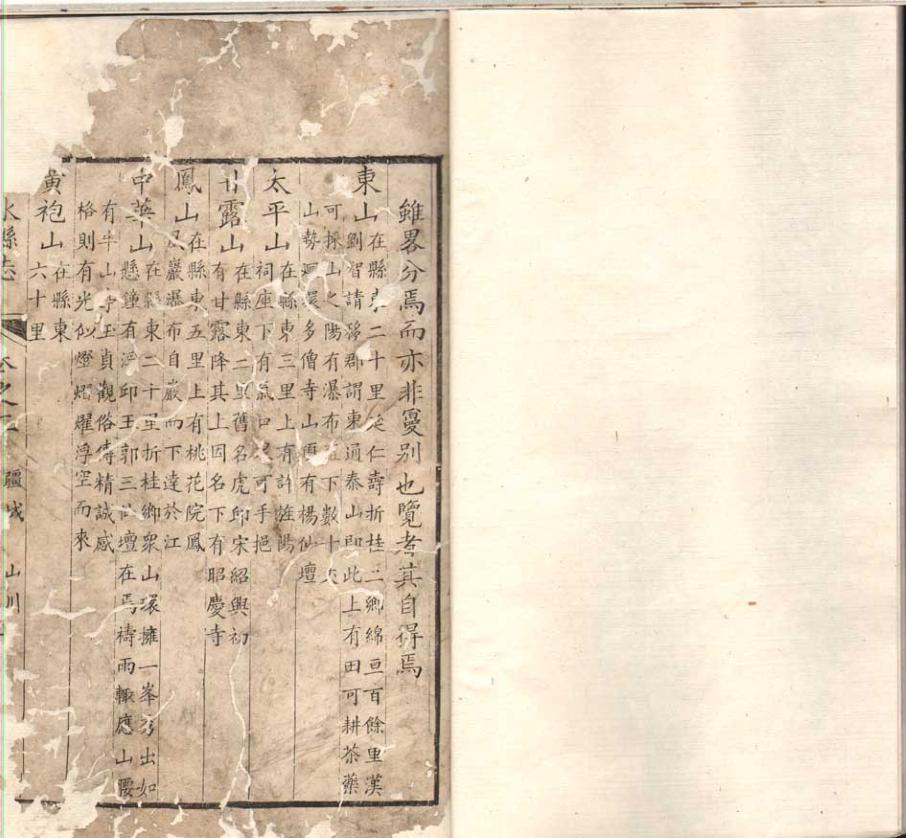 雖畧分焉而亦非憂别也覽者其自得焉
東山在縣東二十里延仁壽折桂二鄉綿亘百餘里漢
劉智請移郡謂東通泰山即此上有田可耕茶藥
可採山之陽有瀑布直下數十丈
山勢迴環多僧寺山頂有楊仙壇
太平山在縣東三里上有許旌陽
祠座下有氣口可手挹
甘露山在縣東二里舊名虎邱宋紹興初
有甘露降其上因名下有昭慶寺
鳳山在縣東五里上有桃花院鳳
凤巖瀑布自巖而下達於江
中華山在縣東二十里折桂鄉衆山環擁一峯秀出如
懸鐘有浮邱王郭三仙壇在焉禱雨輙應山腰
有牛山寺玉貞觀俗傳精誠感
格則有光似燈熠燿浮空而來
黄袍山在縣東
六十里
水縣志 卷之 疆域 山川